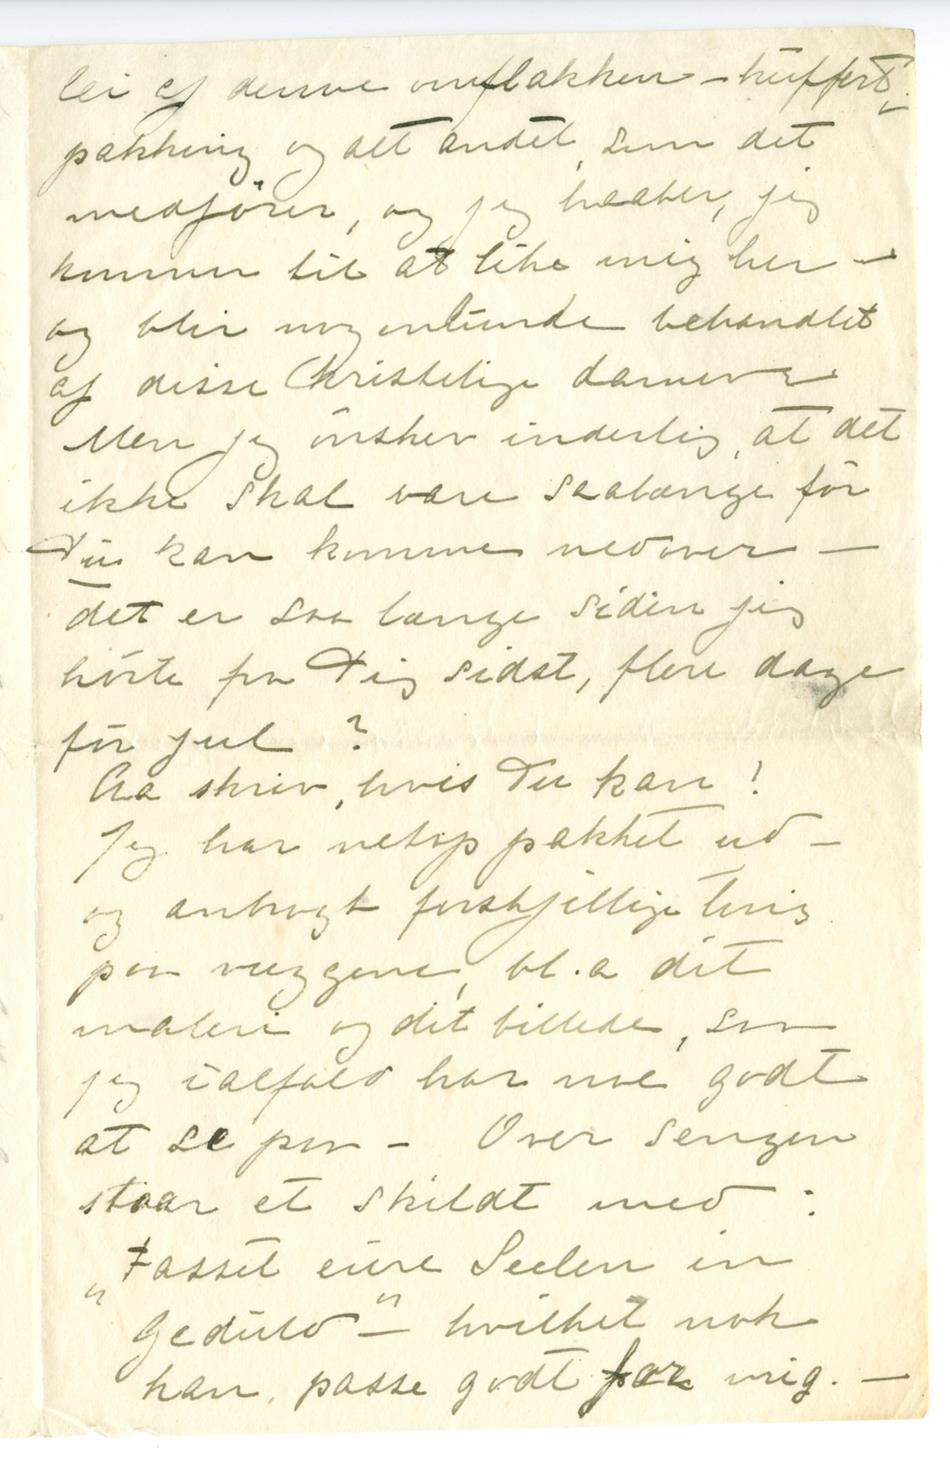 lei af denne omflakken – kuffert-
pakking og alt andet, som det
medfører, og jeg haaber, jeg
kommer til at like mig her –
og blir nogenlunde behandlet
af disse Christelige damer
Men jeg ønsker inderlig, at det
ikke skal være saalænge før
Du kan komme nedover –
det er saa længe siden jeg
hørte fra Dig sidst, flere dage
før jul ?
Aa skriv, hvis Du kan !
Jeg har netop pakket ud –
og anbragt forskjellige ting
paa væggene, bl.a dit
maleri og dit billede, som
jeg ialfald har noe godt
at se paa – Over sengen
staar et skildt med :
"Fasset eure Seelen in
Geduld" – hvilket nok
kan passe godt for mig. –